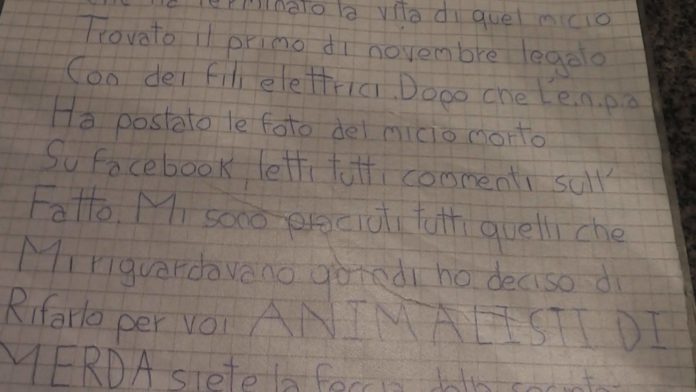 che ha terminato la vita di quel micio
Trovato il primo di novembre legato
Con dei fili elettrici. Dopo che L'e.n.p.a
Ha postato le foto del micio morto
Su facebook, letti tutti commenti sull'
Fatto. Mi sono piaciuti tutti quelli che
Mi riguardavano quindi ho deciso di
Rifarlo per voi ANIMALISTI DI
MERDA siete la feccia della